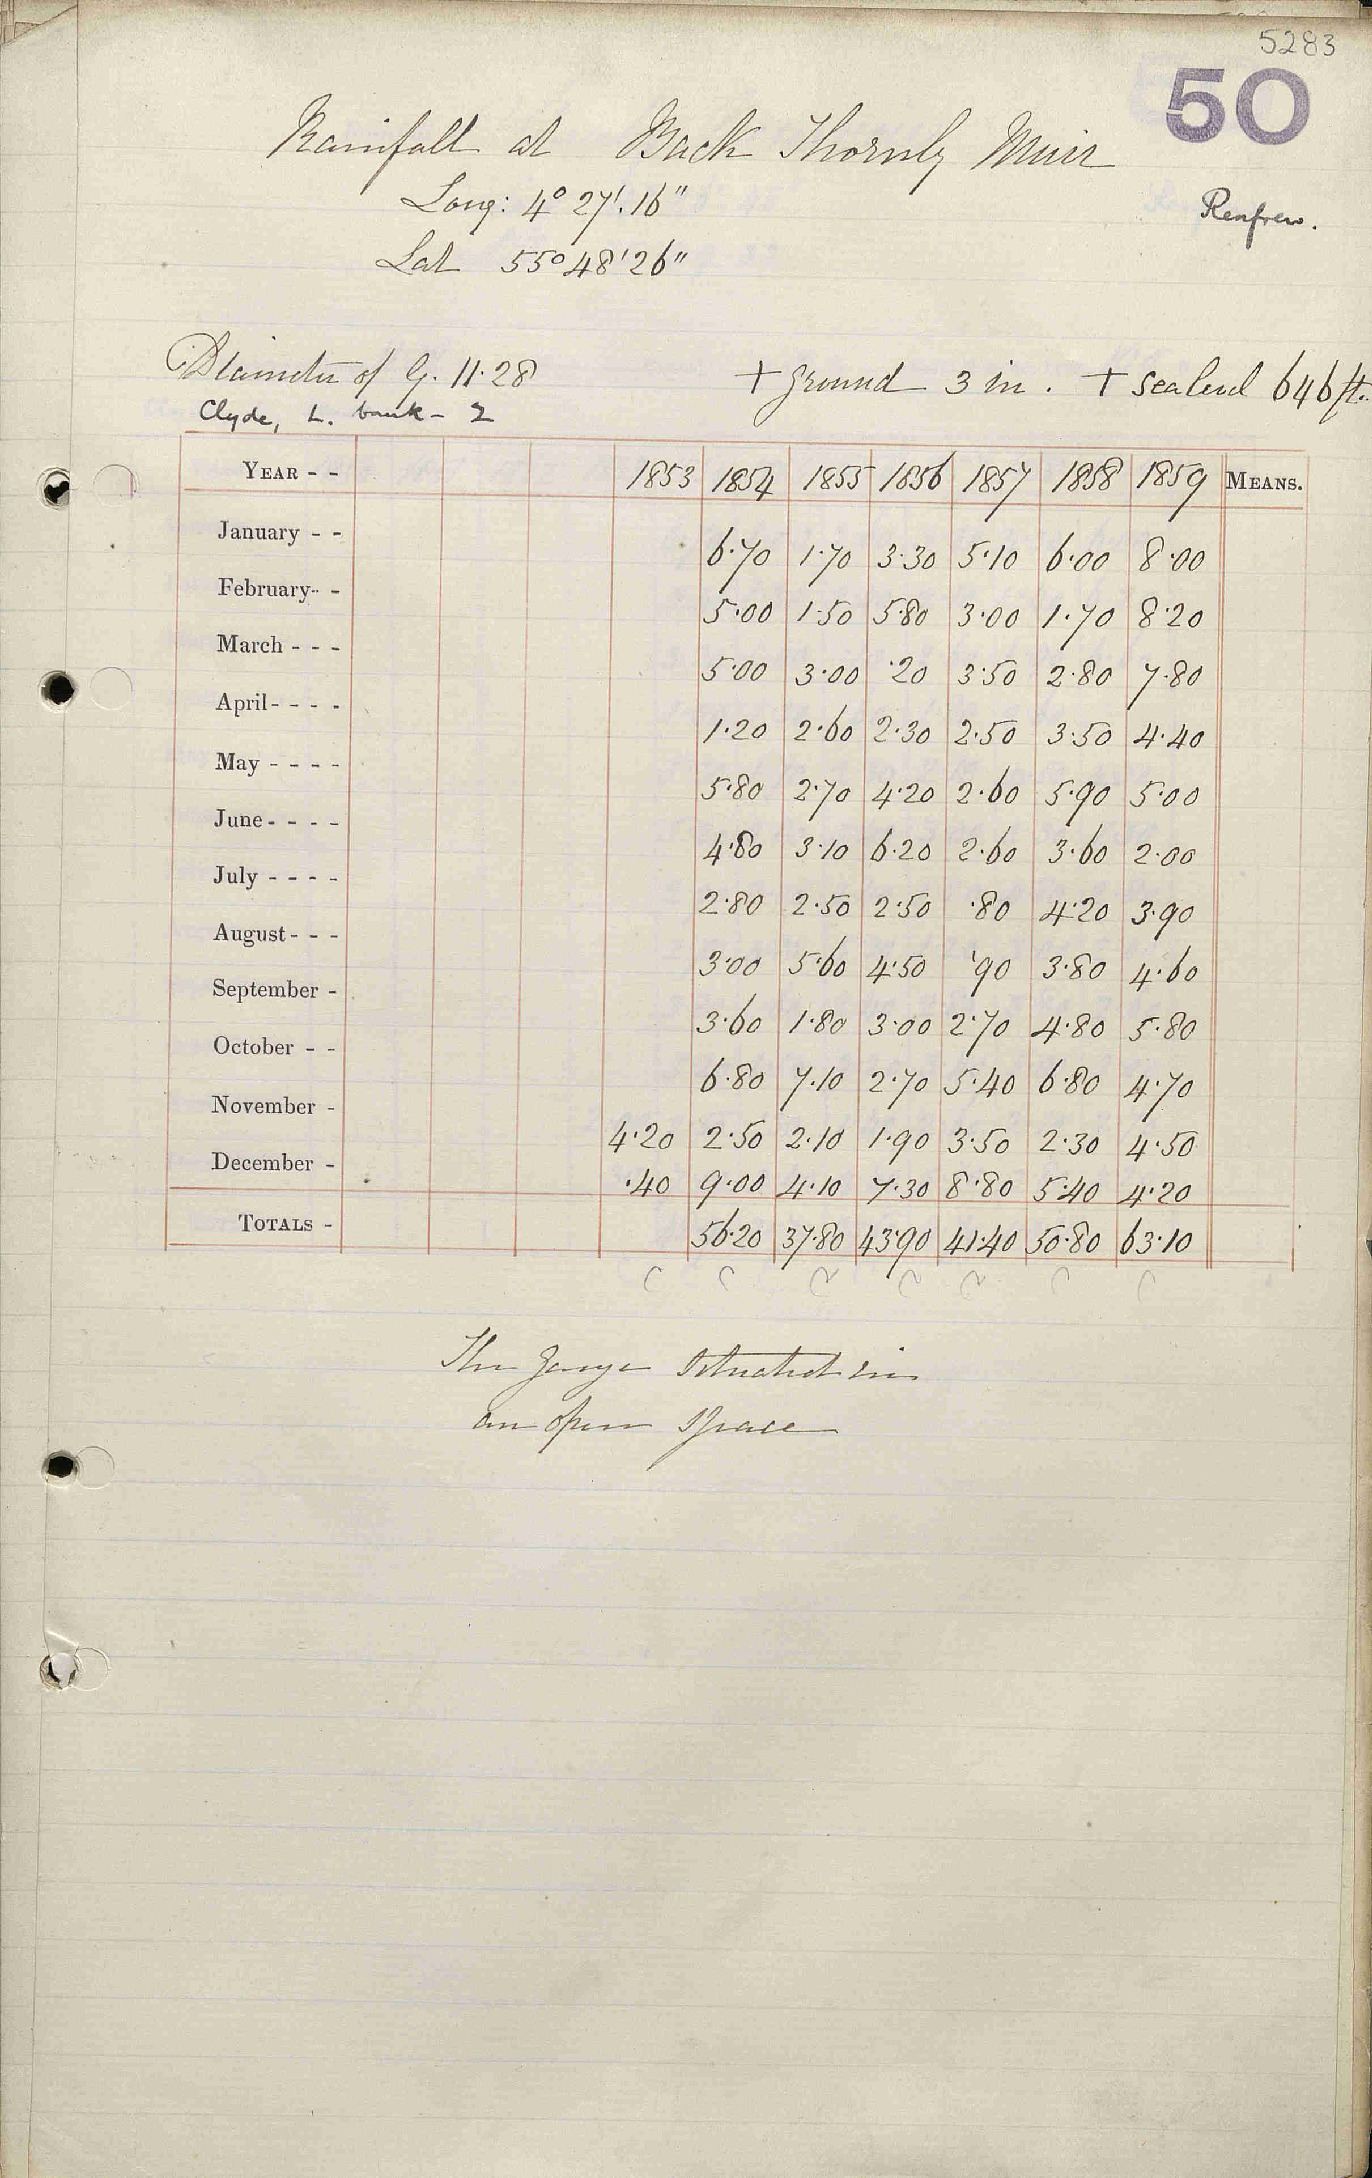 5283
50
Rainfall at Back Thornly Muir
Long: 4° 27'.16"
Renfrew.
Lat 55° 48' 26"
Diameter of G. 11.28 + ground 3 in. + sealevel 646 ft.
Clyde, L. bank - 2
YEAR - - 1853 1854 1855 1856 1857 1858 1859 MEANS.
January - - 6.70 1.70 3.30 5.10 6.00 8.00
February - - 5.00 1.50 5.80 3.00 1.70 8.20
March - - - 5.00 3.00 .20 3.50 2.80 7.80
April - - - - 1.20 2.60 2.30 2.50 3.50 4.40
May - - - - 5.80 2.70 4.20 2.60 5.90 5.00
June - - - - 4.80 3.10 6.20 2.60 3.60 2.00
July - - - - 2.80 2.50 2.50 .80 4.20 3.90
August - - - 3.00 5.60 4.50 .90 3.80 4.60
September - 3.60 1.80 3.00 2.70 4.80 5.80
October - - 6.80 7.10 2.70 5.40 6.80 4.70
November - 4.20 2.50 2.10 1.90 3.50 2.30 4.50
December - .40 9.00 4.10 7.30 8.80 5.40 4.20
TOTALS - 56.20 37.80 43.90 41.40 50.80 63.10
The Gauge situated in
an open space